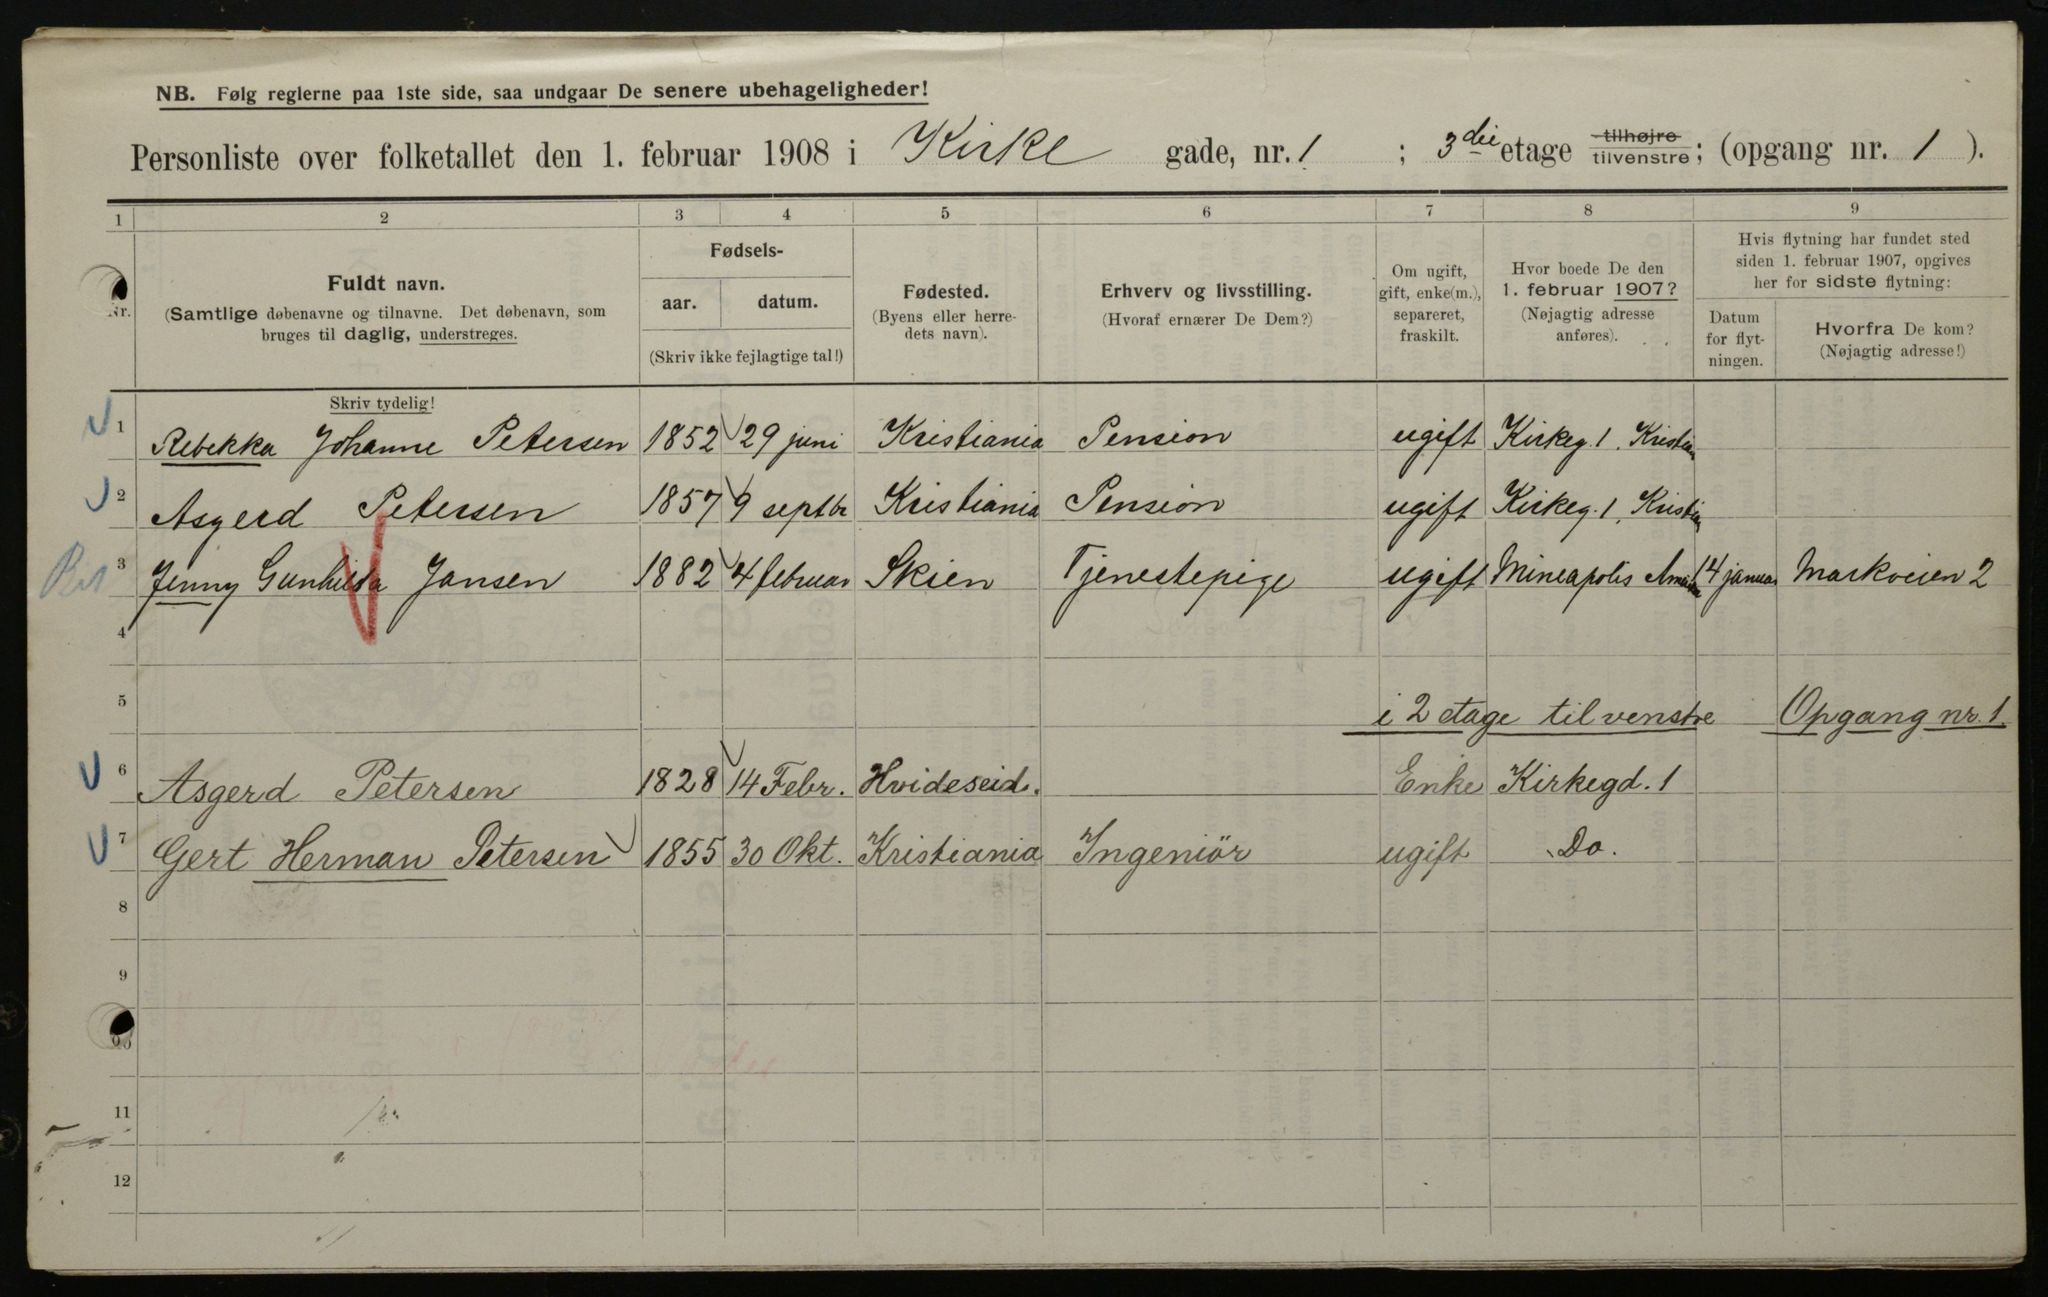 NB. Følg reglerne paa 1ste side, saa undgaar De senere ubehageligheder!
Personliste over folketallet den 1. februar 1908 i Kirke gade, nr. 1 ; 3die etage tilhøjre tilvenstre; (opgang nr. 1 ).
1 2 3 4 5 6 7 8 9
Nr.
Fuldt navn.
(Samtlige døbenavne og tilnavne. Det døbenavn, som
bruges til daglig, understreges.
Skriv tydelig!
Fødsels-
aar. datum.
(Skriv ikke fejlagtige tal!)
Fødested.
(Byens eller herre-
dets navn).
Erhverv og livsstilling.
(Hvoraf ernærer De Dem?)
Om ugift,
gift, enke(m.),
separeret,
fraskilt.
Hvor boede De den
1. februar 1907?
(Nøjagtig adresse
anføres).
Hvis flytning har fundet sted
siden 1. februar 1907, opgives
her for sidste flytning:
Datum
for flyt-
ningen.
Hvorfra De kom?
(Nøjagtig adresse!)
1 Rebekka Johanne Petersen 1852 29 juni Kristiania Pension ugift Kirkeg. 1. Kristian
2 Asgerd Petersen 1857 9 septbr Kristiania Pension ugift Kirkeg. 1. Kristian
3 Jenny Gunhilda Jansen 1882 4 februar Skien Tjenestepige ugift Mineapolis 14 januar Markveien 2
4
5 i 2 etage til venstre Opgang nr. 1
6 Asgerd Petersen 1828 14 Febr. Hvideseid. Enke Kirkegd. 1
7 Gert Herman Petersen 1855 30 Okt. Kristiania Ingeniör ugift Do.
8
9
10
11
12